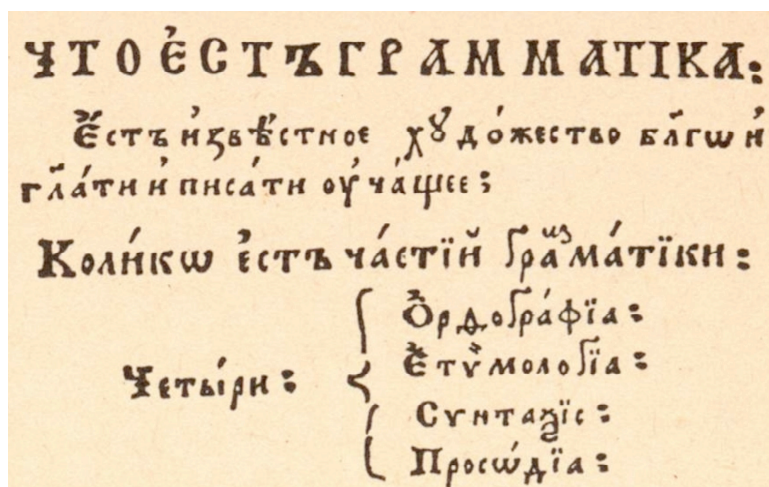 ЧТО Е҆СТЪ ГРАММАТІКА:
Е҆́стъ и҆звѣ́стное хꙋдо́жество бл҃гѡ и҆
гл҃ати и҆ писа́ти ᲂу҆ча́щее;
Коли́кѡ є҆стъ ча́стїй граⷨма́тїки:
Четы́ри:
Ѻ҆рѳогра́фїа:
Е҆тѷмоло́гїа:
Сѵнта́ѯїс:
Просѡ́дїа: